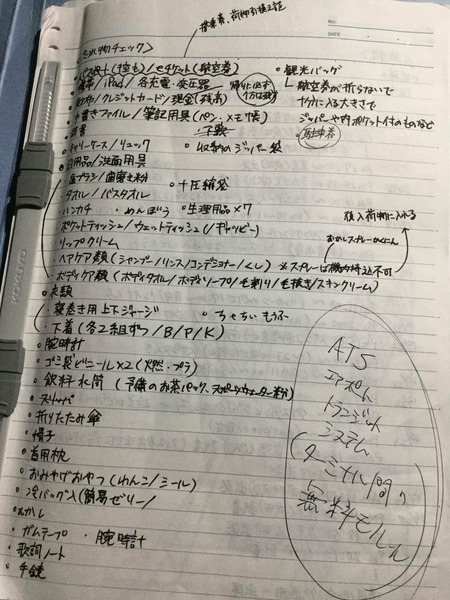 搭乗券、荷物引換証
<忘れ物チェック>
No.
DATE
パスポート(控も)/eチケット(航空券)
携帯/iPad/各充電・変圧器
財布/クレジットカード/現金(残高)
手書きファイル/筆記用具(ペン・メモ帳)
辞書
手鏡
キャリーケース/リュック
収納のジッパー袋
日用品/洗面用具
歯ブラシ/歯磨き粉
十圧縮袋
タオル/バスタオル
ハンカチ ・めんぼう 生理用品×7
ポケットティッシュ/ウェットティッシュ(/ギャッビー)
リップクリーム
ヘアケア類(シャンプー/リンス/コンディショナー/くし) ※スプレーは機内持込不可
ボディケア類(ボディタオル/ボディソープ/毛剃り/毛抜き/スキンクリーム)
衣類
寝巻き用上下ジャージ
下着(各2組ずつ/B/P/K)
腕時計
ゴミ袋ビニール×2(燃・プラ)
飲料水筒(予備のお茶パック、スポーツウォーター粉)
スリッパ
折りたたみ傘
帽子
首用枕
おみやげおやつ(わんこ/ミール)
冷バッグ入(簡易ゼリー/
ガムテープ ・腕時計
歌詞ノート
手鏡
観光バッグ
航空券が折らないで
十分に入る大きさで
ジッパーや内ポケット付のものなど
ATS
エアポート
トランジット
システム
(ターミナル間)
無料モルール
KOKUYO